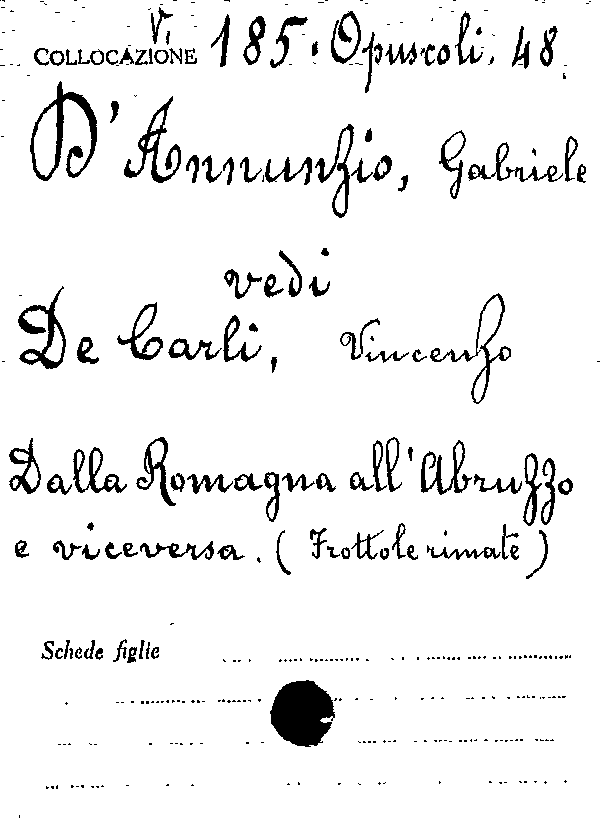 V.
COLLOCAZIONE 185. Opuscoli. 48.
D'Annunzio, Gabriele
vedi
De Carli, Vincenzo
Dalla Romagna all'Abruzzo
e viceversa. (Frottole rimate)
Schede figlie